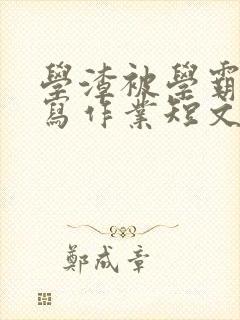 學渣被學霸
寫作業短文
鄭成章